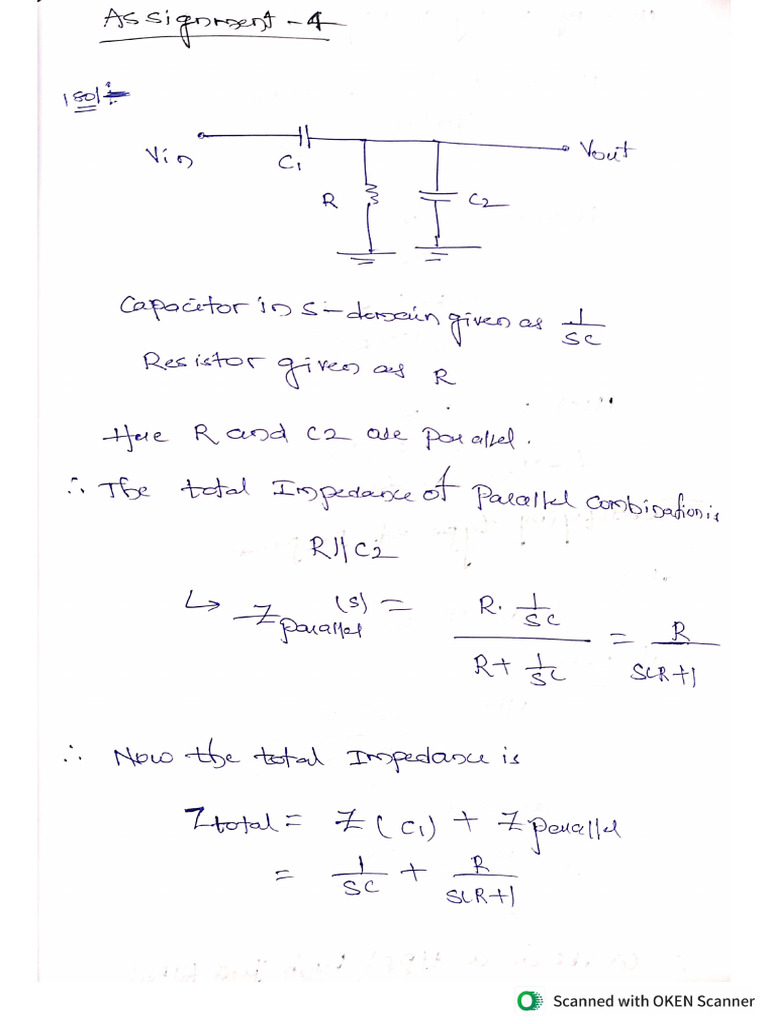 Assignment - 4
1 sol :-
Vin
C1
R
C2
Vout
Capacitor in s-domain given as 1/SC
Resistor given as R
Here R and C2 are parallel.
∴ The total Impedance of Parallel combination is
R || C2
↳ Z parallel (s) = (R · 1/SC) / (R + 1/SC) = R / (SCR+1)
∴ Now the total Impedance is
Z total = Z(C1) + Z parallel
= 1/SC + R/(SCR+1)
Scanned with OKEN Scanner